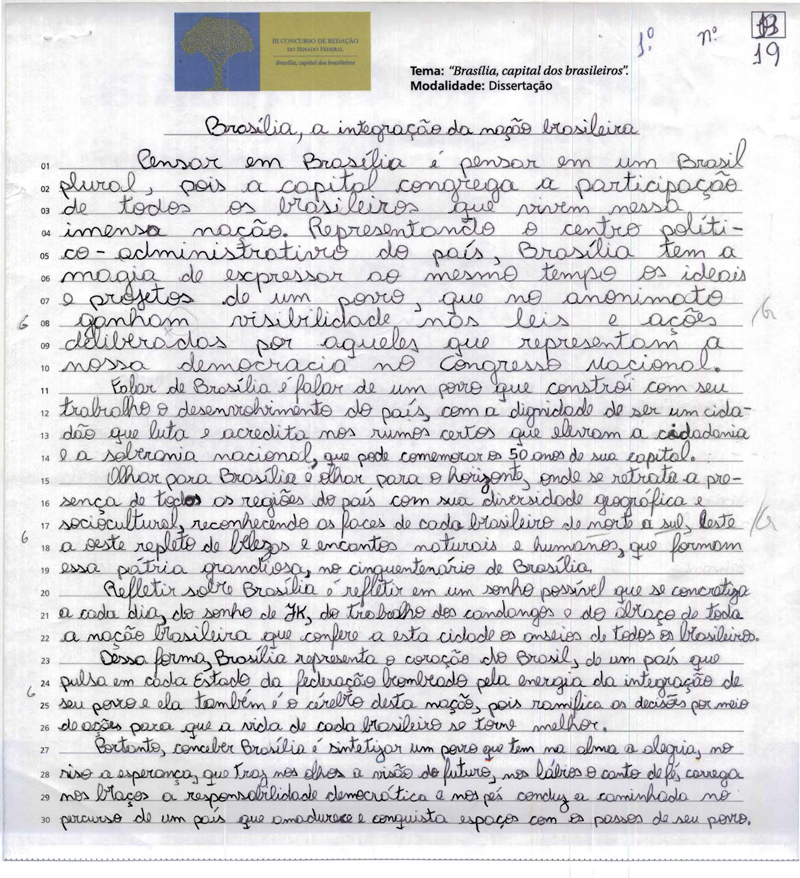 III CONCURSO DE REDAÇÃO
DO SENADO FEDERAL
Brasília, capital dos brasileiros
1º nº 13
19
Tema: "Brasília, capital dos brasileiros".
Modalidade: Dissertação
Brasília, a integração da nação brasileira
01 Pensar em Brasília é pensar em um Brasil
02 plural, pois a capital congrega a participação
03 de todos os brasileiros que vivem nessa
04 imensa nação. Representando o centro políti-
05 co-administrativo do país, Brasília tem a
06 magia de expressar ao mesmo tempo os ideais
07 e projetos de um povo, que no anonimato
08 ganham visibilidade nas leis e ações
09 deliberadas por aqueles que representam a
10 nossa democracia no Congresso Nacional.
11 Falar de Brasília é falar de um povo que constrói com seu
12 trabalho o desenvolvimento do país, com a dignidade de ser um cida-
13 dão que luta e acredita nos rumos certos que elevam a cidadania
14 e a soberania nacional, que pode comemorar os 50 anos de sua capital.
15 Olhar para Brasília é olhar para o horizonte, onde se retrata a pre-
16 sença de todas as regiões do país com sua diversidade geográfica e
17 sociocultural, reconhecendo as faces de cada brasileiro de norte a sul, leste
18 a oeste repleto de belezas e encantos naturais e humanos, que formam
19 essa pátria grandiosa, no cinquentenário de Brasília.
20 Refletir sobre Brasília é refletir em um sonho possível que se concretiza
21 a cada dia, do sonho de JK, do trabalho dos candangos e do abraço de toda
22 a nação brasileira que confere a esta cidade os anseios de todos os brasileiros.
23 Dessa forma, Brasília representa o coração do Brasil, de um país que
24 pulsa em cada Estado da federação bombado pela energia da integração de
25 seu povo e ela também é o cérebro desta nação, pois ramifica as decisões por meio
26 de ações para que a vida de cada brasileiro se torne melhor.
27 Portanto, conceber Brasília é sintetizar um povo que tem na alma a alegria, no
28 riso a esperança, que traz nos olhos a visão do futuro, nos lábios o canto de fé, carrega
29 nos braços a responsabilidade democrática e nos pés conduz a caminhada no
30 percurso de um país que amadurece e conquista espaços com os passos de seu povo.